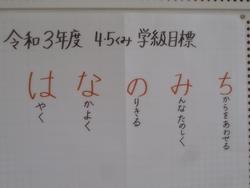 令和3年度 4・5くみ 学級目標
はやく
なかよく
のりきる
みんなたのしく
ちからをあわせる